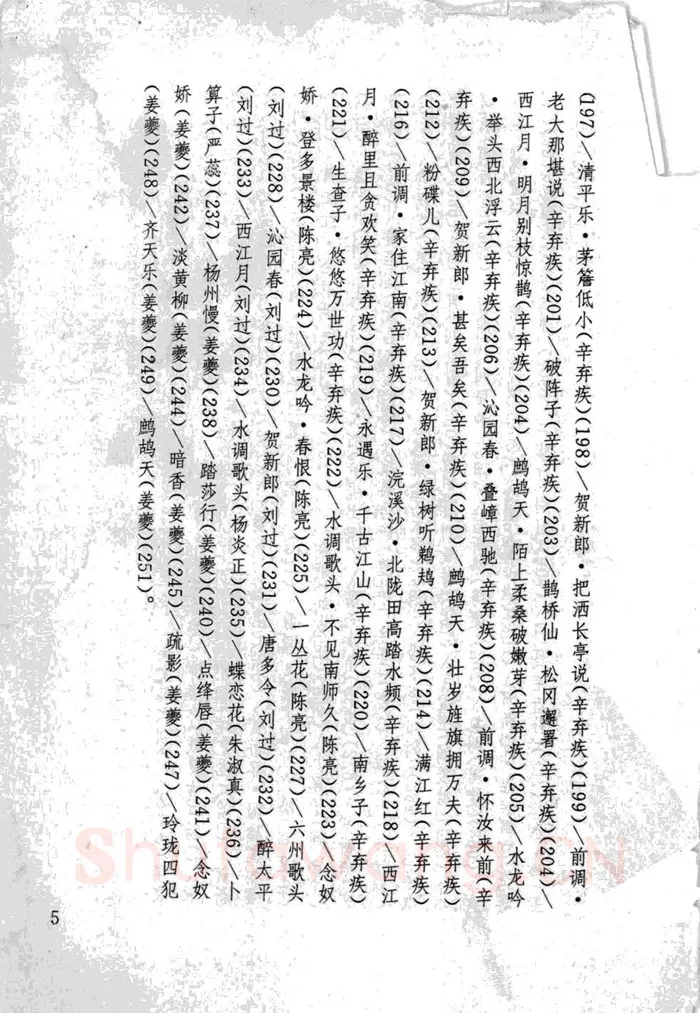 (197)╱清平乐·茅簷低小(辛弃疾)(198)╱贺新郎·把洒长亭说(辛弃疾)(199)╱前调·
老大那堪说(辛弃疾)(201)╱破阵子(辛弃疾)(203)╱鹊桥仙·松冈邂署(辛弃疾)(204)╱
西江月·明月别枝惊鹊(辛弃疾)(204)╱鹧鸪天·陌上柔桑破嫩芽(辛弃疾)(205)╱水龙吟
·举头西北浮云(辛弃疾)(206)╱沁园春·叠嶂西驰(辛弃疾)(208)╱前调·怀汝来前(辛
弃疾)(209)╱贺新郎·甚矣吾矣(辛弃疾)(210)╱鹧鸪天·壮岁旌旗拥万夫(辛弃疾)
(212)╱粉碟儿(辛弃疾)(213)╱贺新郎·绿树听鹈鴂(辛弃疾)(214)╱满江红(辛弃疾)
(216)╱前调·家住江南(辛弃疾)(217)╱浣溪沙·北陇田高踏水频(辛弃疾)(218)╱西江
月·醉里且贪欢笑(辛弃疾)(219)╱永遇乐·千古江山(辛弃疾)(220)╱南乡子(辛弃疾)
(221)╱生查子·悠悠万世功(辛弃疾)(222)╱水调歌头·不见南师久(陈亮)(223)╱念奴
娇·登多景楼(陈亮)(224)╱水龙吟·春恨(陈亮)(225)╱一丛花(陈亮)(227)╱六州歌头
(刘过)(228)╱沁园春(刘过)(230)╱贺新郎(刘过)(231)╱唐多令(刘过)(232)╱醉太平
(刘过)(233)╱西江月(刘过)(234)╱水调歌头(杨炎正)(235)╱蝶恋花(朱淑真)(236)╱卜
算子(严蕊)(237)╱杨州慢(姜夔)(238)╱踏莎行(姜夔)(240)╱点绛唇(姜夔)(241)╱念奴
娇(姜夔)(242)╱淡黄柳(姜夔)(244)╱暗香(姜夔)(245)╱疏影(姜夔)(247)╱玲珑四犯
(姜夔)(248)╱齐天乐(姜夔)(249)╱鹧鸪天(姜夔)(251)。
5
Shufawang.CN